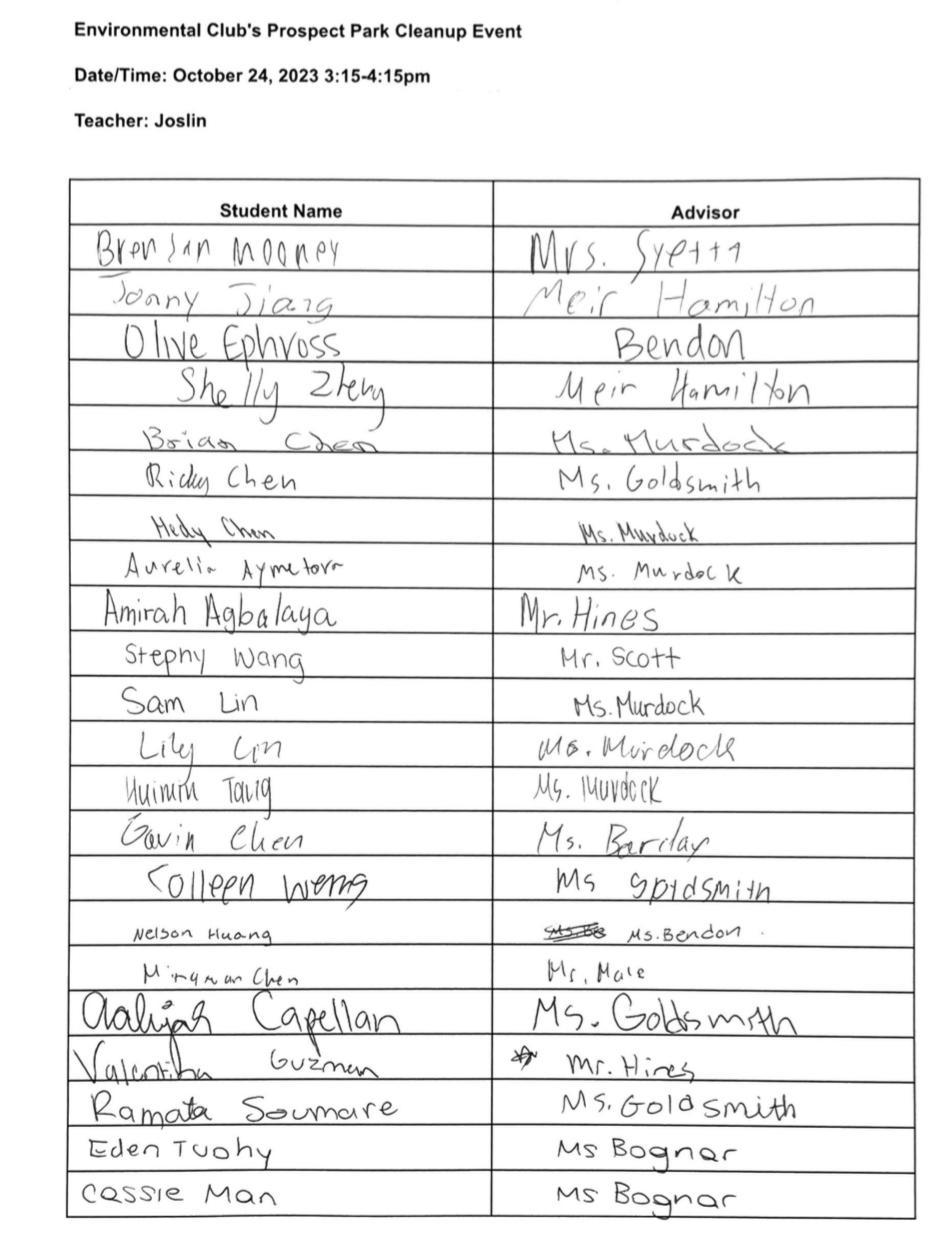 Environmental Club's Prospect Park Cleanup Event
Date/Time: October 24, 2023 3:15-4:15pm
Teacher: Joslin
Student Name Advisor
Brendan Mooney Mrs. Syetta
Jonny Jiang Meir Hamilton
Olive Ephross Bendon
Shelly Zheng Meir Hamilton
Brian Chen Ms. Murdock
Ricky Chen Ms. Goldsmith
Hedy Chen Ms. Murdock
Aurelia Aymetova Ms. Murdock
Amirah Agbalaya Mr. Hines
Stephy Wang Mr. Scott
Sam Lin Ms. Murdock
Lily Lin Ms. Murdock
Huimin Tang Ms. Murdock
Gavin Chen Ms. Barclay
Colleen Weng Ms Goldsmith
Nelson Huang Ms. Bendon
Chen
Aaliyah Capellan Ms. Goldsmith
Valentina Guzman Mr. Hines
Ramata Soumare Ms. Goldsmith
Eden Tuohy Ms Bognar
Cassie Man Ms Bognar